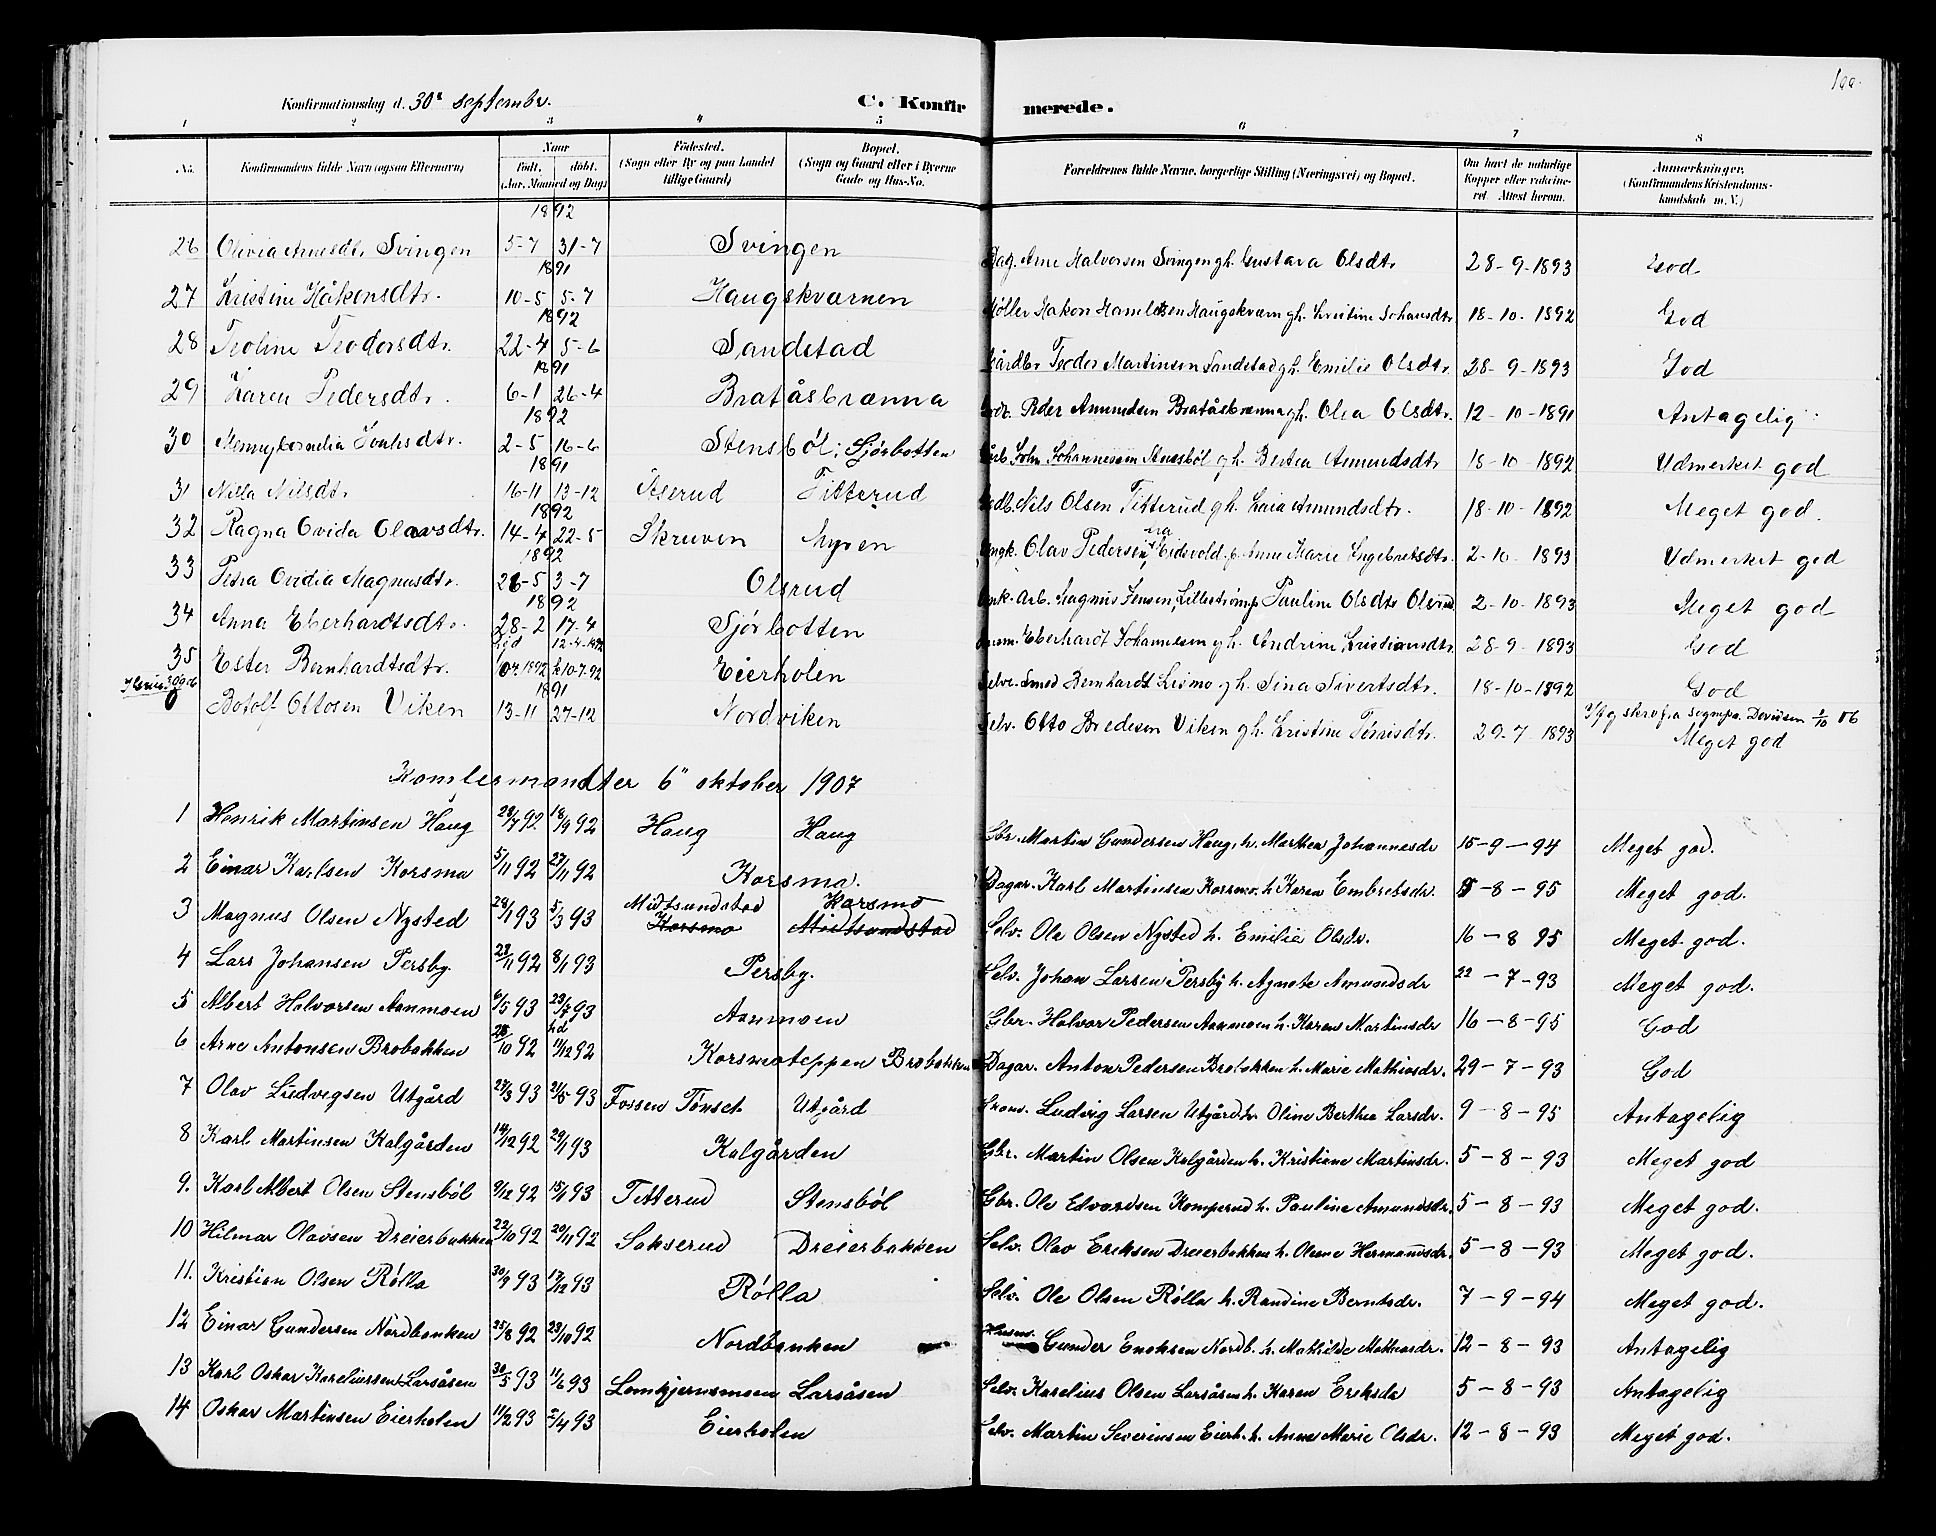 100.
Konfirmationsdag d. 30te septembr. C. Konfirmerede.
1 2 3 4 5 6 7 8
No. Konfirmandens fulde Navn (ogsaa Efternavn) Naar Födt, döbt. (Aar, Maaned og Dag) Födested. (Sogn eller By og paa Landet tillige Gaard) Bopæl. (Sogn og Gaard eller i Byerne Gade og Hus-No. Forældrenes fulde Navne, borgerlige Stilling (Næringsvei) og Bopæl. Om havt de naturlige Kopper eller vakcineret. Attest herom. Anmærkninger. (Konfirmandens Kristendomskundskab m. V.)
1892
26 Olivia Arnesdtr Svingen 5-7 31-7 Svingen Dag. Arne Halvorsen Svingen gh. Gustava Olsdtr 28-9-1893 God
1891
27 Kristine Håkensdtr. 10-5 5-7 Haugskværnen Møller Hakon Hamletsen Haugskværn gh. Kristine Johansdtr 18-10-1892 God
1892
28 Teoline Teodorsdtr. 22-4 5-6 Sandstad Gårdbr Teodor Martinsen Sandstad gh. Emilie Olsdtr. 28-9-1893 God
1891
29 Karen Pedersdtr. 6-1 26-4 Bratåsbrænna Peder Amundsen Bratåsbrænna gh. Olea Olsdtr. 12-10-1891 Antagelig
1892
30 Henny Cornelia Johsdtr. 2-5 16-6 Stensbøl; Sjørbotten John Johannessen Stensbøl gh. Bertea Amundsdtr 18-10-1892 Udmerket god
1891
31 Nilla Nilsdtr 16-11 13-12 Åserud Titterud Nils Olsen Titterud gh. Kaia Amundsdtr. 18-10-1892 Meget god.
1892
32 Ragna Ovida Olavsdtr. 14-4 22-5 Skruven Myren Ungk. Olav Pedersen, fra Eidsvold p. Anne Marie Engebretsdtr. 2-10-1893 Udmerket god
1892
33 Petra Ovidia Magnusdtr. 26-5 3-7 Olsrud Unk. Arb. Magnus Jensen, Lillestrøm p Pauline Olsdtr Olsrud 2-10-1893 Meget god
1892
34 Anna Eberhardtsdtr. 28-2 17-4 Sjørbotten Eberhardt Johannesen gh. Andrine Kristiansdtr 28-9-1893 God
hjd 12-4-1892
35 Ester Bernhardtsdtr. 10/4 1892 k10-7-92 Eierholen Selve. Smed Bernhardt Lismo gh. Sina Sivertsdtr. 18-10-1892 God
1891
0 Botolf Ottosen Viken 13-11 27-12 Nordviken Selv. Otto Bredesen Viken gh. Kristine Tønisdtr. 29-7-1893 sogmpr. 2/10 06
Meget god
Komfermandter 6" oktober 1907
1 Henrik Martinsen Haug 29/7 92 18/9 92 Haug Haug Gbr. Martin Gundersen Haug, h. Marthea Johannesdr 15-9-94 Meget god.
2 Einar Karlsen Korsma 5/11 92 27/11 92 Korsma. Dagar. Karl Martinsen Korsmo h. Karen Embretsdr. 5-8-95 Meget god.
3 Magnus Olsen Nysted 28/1 93 5/3 93 Midtsundstad Korsmo Selv. Ole Olsen Nysted h. Emilie Olsdr. 16-8 95 Meget god.
Korsmo Midtsundstad
4 Lars Johansen Persby. 23/11 92 8/1 93 Persby. Selv. Johan Larsen Persby h. Agnete Amundsdr 22-7-93 Meget god.
5 Albert Halvorsen Aanmoen 6/5 93 23/7 93 Aanmoen Gbr. Halvor Pedersen Aanmoen h. Karen Martinsdr 16-8-95 God
hd
6 Arne Antonsen Brobakken 28/10 92 11/12 92 Korsmoteppen Brobakken Dagar. Anton Pedersen Brobakken h. Marie Mathiasdr. 29-7-93 God
7 Olav Ludvigsen Utgård 27/3 93 21/5 93 Fossen Tønset Utgård Ludvig Larsen Utgård h. Oline Berthea Larsdr. 9-8-95 Antagelig
8 Karl Martinsen Kalgården 14/12 92 29/1 93 Kalgården Gbr. Martin Olsen Kalgården h. Kristiane Martinsdr. 5-8-93 Meget god
9. Karl Albert Olsen Stensbøl 9/12 92 15/1 93 Tetterud Stensbøl Gbr. Ole Edvardsen Komperud h. Pauline Amundsdr. 5-8-93 Meget god.
10 Hilmar Olavsen Dreierbakken 22/10 92 20/11 92 Sakserud Dreierbakken Selv. Olav Eriksen Dreierbakken h. Olene Hermansdr. 5-8-93 Meget god.
11. Kristian Olsen Rølla 30/9 93 17/12 93 Rølla Selv. Ole Olsen Rølla h. Randine Berntsdr. 7-9-94 Meget god.
12 Einar Gundersen Nordbanken 25/8 92 23/10 92 Nordbanken Husm. Gunder Enoksen Nordb. h. Mathilde Mathiasdr. 12-8-93 Antagelig
13 Karl Oskar Kareliussen Larsåsen 30/5 93 11/6 93 Lomkjernsmoen Larsåsen Selv. Karelius Olsen Larsåsen h. Karen Eriksdr 5-8-93 Antagelig
14 Oskar Martinsen Eierholen 11/2 93 2/4 93 Eierholen Selv. Martin Severinsen Eierh. h. Anne Marie Olsdr. 12-8-93 Meget god.